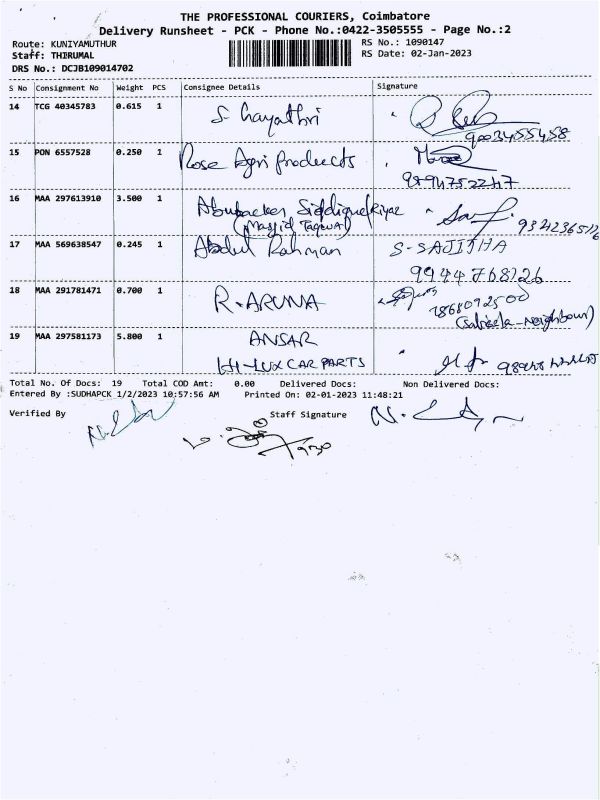 THE PROFESSIONAL COURIERS, Coimbatore
Delivery Runsheet - PCK - Phone No.:0422-3505555 - Page No.:2
Route: KUNIYAMUTHUR
RS No.: 1090147
Staff: THIRUMAL
RS Date: 02-Jan-2023
DRS No.: DCJB109014702
S No Consignment No Weight PCS Consignee Details Signature
14 TCG 40345783 0.615 1 S. Gayathri
9003455458
15 PON 6557528 0.250 1 Rose Agri Products
16 MAA 297613910 3.500 1 Abubacker Siddique Riyaz
(Masjid Taqwa)
17 MAA 569638547 0.245 1 Abdul Rahman S-SAJITHA
9944768126
18 MAA 291781471 0.700 1 R. ARUNA 7868092500
19 MAA 297581173 5.800 1 ANSAR
HI-LUX CAR PARTS
Total No. Of Docs: 19 Total COD Amt: 0.00 Delivered Docs: Non Delivered Docs:
Entered By :SUDHAPCK 1/2/2023 10:57:56 AM Printed On: 02-01-2023 11:48:21
Verified By Staff Signature